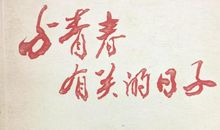 与青春
有关的日子